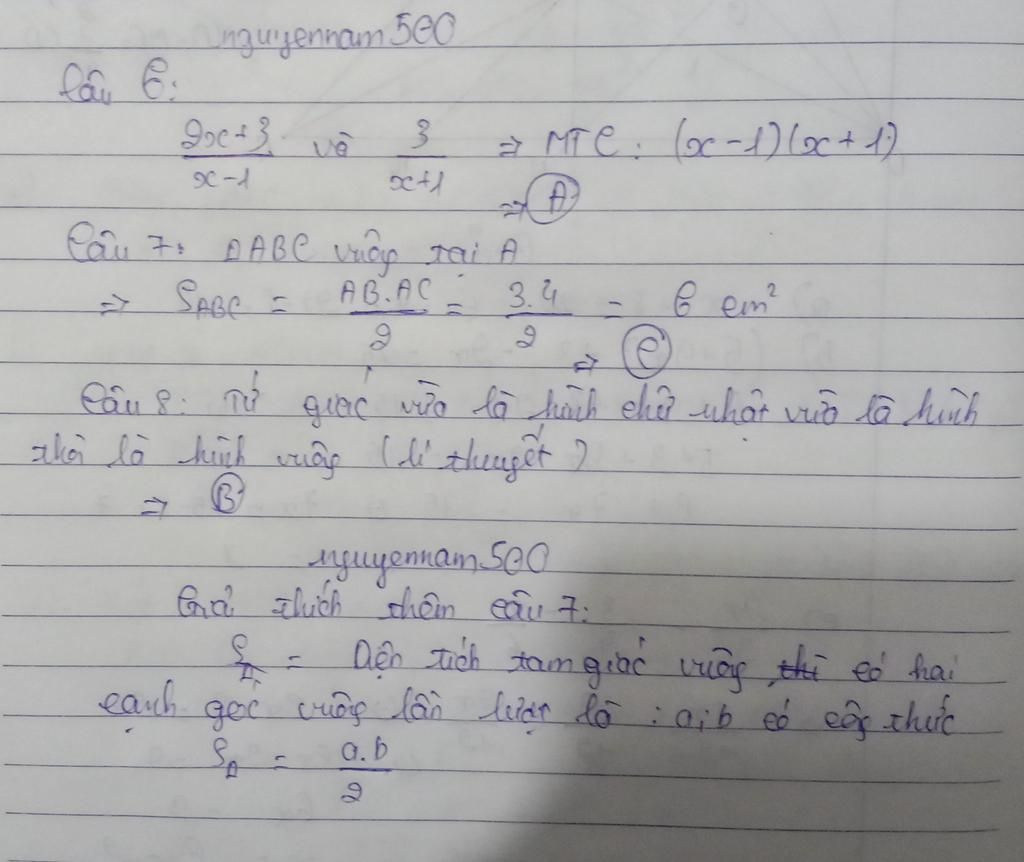 nguyennam500
Câu 6:
2x+3/x-1 và 3/x+1 => MTC: (x-1)(x+1)
=> A
Câu 7: ΔABC vuông tại A
=> S_ABC = AB.AC/2 = 3.4/2 = 6 cm²
=> C
Câu 8: Tứ giác vừa là hình chữ nhật vừa là hình
thoi là hình vuông (lí thuyết)
=> B
nguyennam500
Giải thích thêm câu 7:
S_Δ = Diện tích tam giác vuông thì có hai
cạnh góc vuông lần lượt là : a;b có công thức
S_Δ = a.b/2